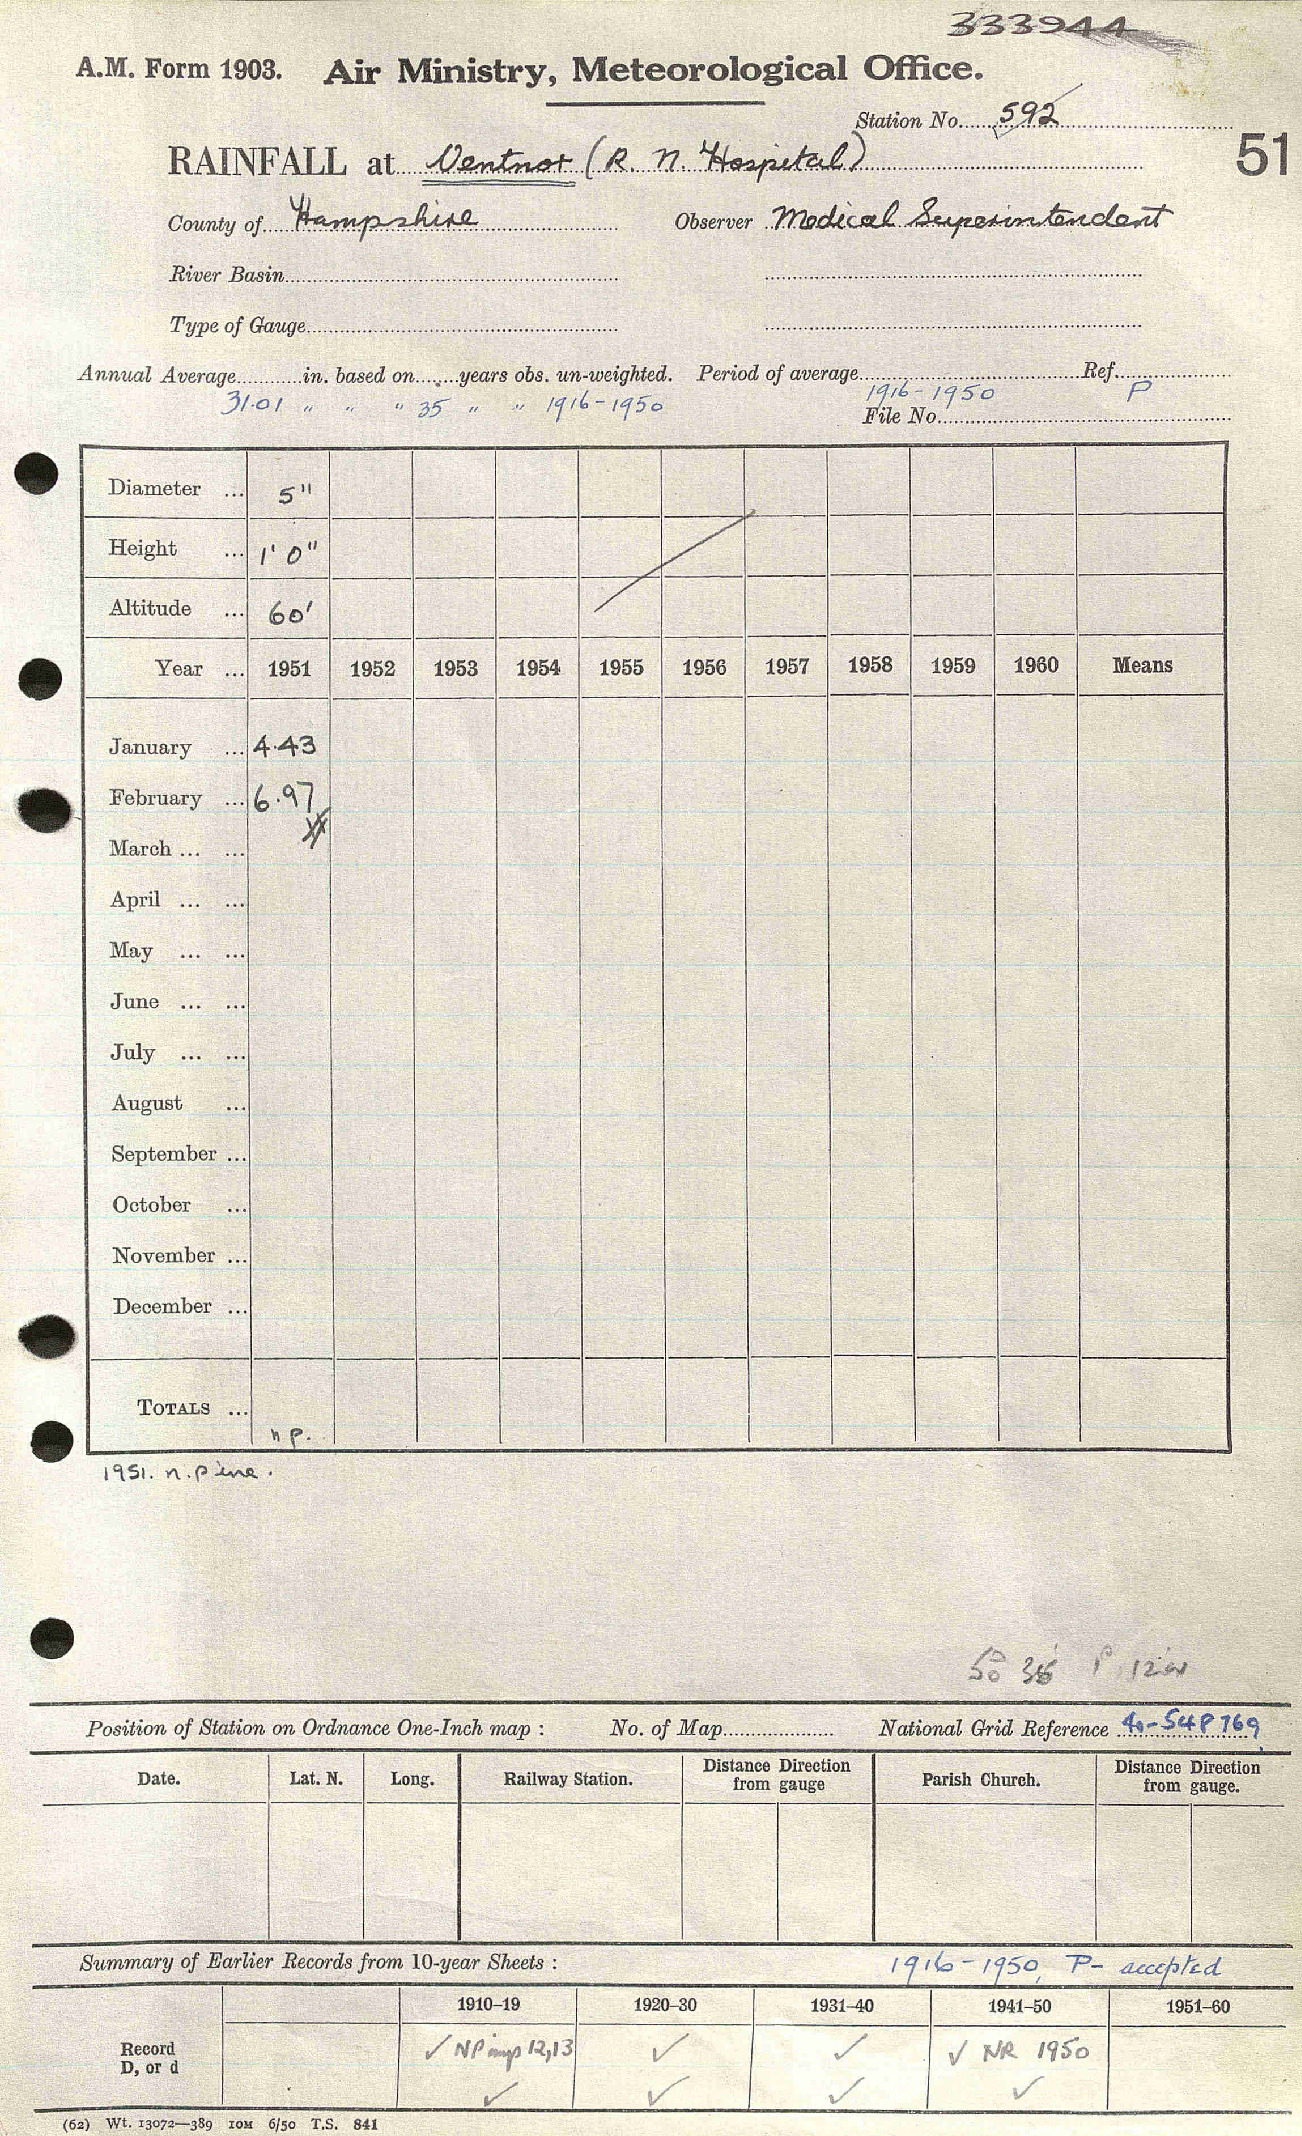 333944
A.M. Form 1903. Air Ministry, Meteorological Office.
Station No. 592
51
RAINFALL at Ventnor (R. N. Hospital)
County of Hampshire Observer Medical Superintendent
River Basin
Type of Gauge
Annual Average in. based on years obs. un-weighted. Period of average 1916-1950 Ref. P
31.01 " " " 35 " " 1916-1950
File No.
Diameter ... 5"
Height ... 1' 0"
Altitude ... 60'
Year ... 1951 1952 1953 1954 1955 1956 1957 1958 1959 1960 Means
January ... 4.43
February ... 6.97
March ... ...
April ... ...
May ... ...
June ... ...
July ... ...
August ...
September ...
October ...
November ...
December ...
TOTALS ... n p.
1951. n.p
50 35 P
Position of Station on Ordnance One-Inch map : No. of Map National Grid Reference 40-548769
Date. Lat. N. Long. Railway Station. Distance from gauge Direction Parish Church. Distance from gauge. Direction
Summary of Earlier Records from 10-year Sheets : 1916-1950, P- accepted
1910–19 1920–30 1931–40 1941–50 1951–60
Record ✓ NP 12,13 ✓ ✓ ✓ NR 1950
D, or d ✓ ✓ ✓ ✓
(62) Wt. 13072—389 10M 6/50 T.S. 841